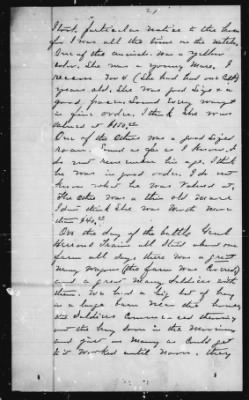 I took particular notice to the horses
for I was all the time on the watch,
One of the animals was a yellow
color. She was a young Mare. I
reckon 3 or 4 (She had had one Colt)
years old. She was good size & a
good, pacer. Sound every way &
in good order. I think she was
valued at
One of the others was a good sized
roan. Sound as far as I know. I
do not remember his age. I think
he was in good order. I do not
know what he was Valued at,
The other was a thin old Mare
I don't think She was Worth more
than $40.00
On the day of the battle Genl
Train all about our
farm all day. there was a great
Many wagons (the farm was Covered)
and a great Many Soldiers with
them. We had a big lot of hay
in a large barn near the house,
the Soldiers Commenced
out the hay soon in the Morning
and just as Many as Could get
to it Worked until Noon. they